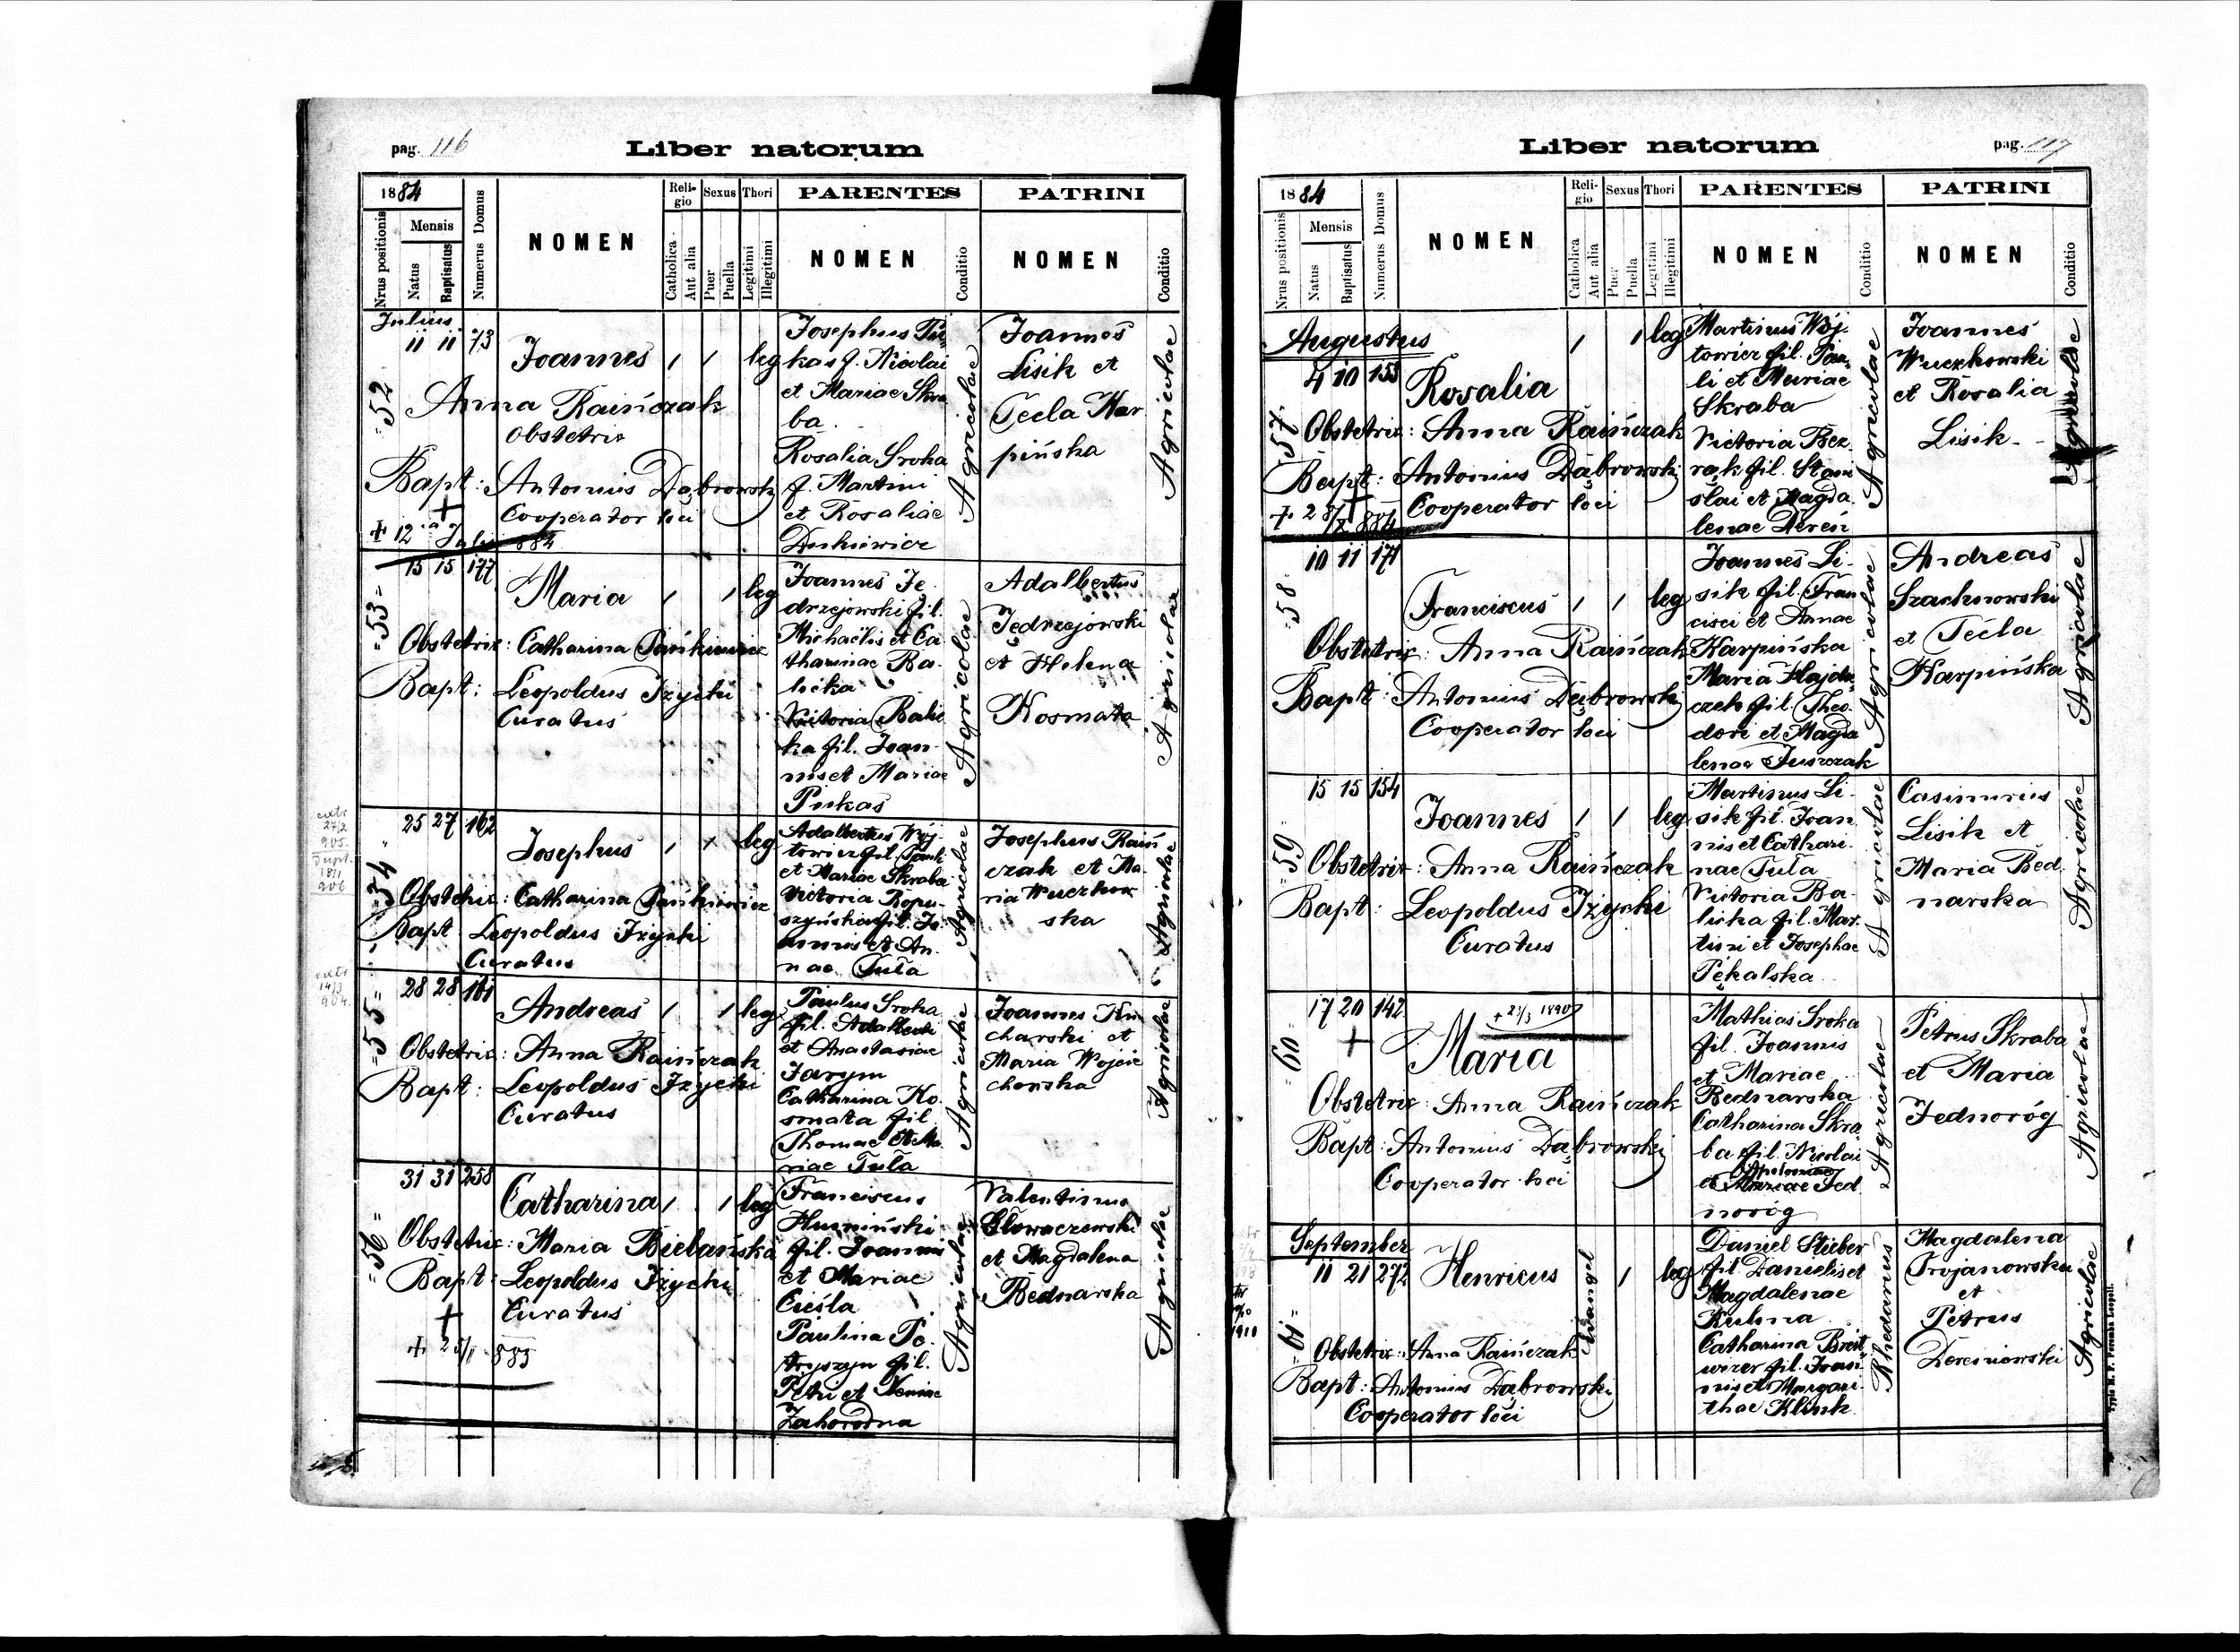 pag. 116
Liber natorum
1884
Nrus positionis
Mensis
Natus
Baptisatus
Numerus Domus
NOMEN
Religio
Catholica
Aut alia
Sexus
Puer
Puella
Thori
Legitimi
Illegitimi
PARENTES
NOMEN
Conditio
PATRINI
NOMEN
Conditio
Julius
11 11 73
=52
Joannes
1 1 leg
Anna Rainczak
Obstetrix
Bapt: Antonius Dąbrowski
Cooperator loci
+ 12 Julii 884
kas f. Nicolai
et Mariae Skra
ba
Rosalia Sroka
f. Martini
et Rosaliae
Agricolae
Joannes
Lisik et
Tecla Kar
pińska
Agricolae
15 15 177
=53=
Maria
1 1 leg
Obstetrix: Catharina Pańkiewicz
Bapt: Leopoldus Iżycki
Curatus
Joannes Ję
drzejowski fil.
Michaëlis et Ca
tharinae Ba
licka
Victoria Balic
ka fil. Joan
nis et Mariae
Pukas
Agricolae
Adalbertus
Jędrzejowski
et Helena
Kosmata
Agricolae
25 27 162
=54
Josephus
1 leg
Obstetrix: Catharina Pańkiewicz
Bapt Leopoldus Iżycki
Curatus
Adalbertus Wój
towicz fil. Pauli
et Mariae Skraba
Victoria Ropu
szyńska fil. Jo
annis et An
nae Tuła
Agricolae
Josephus Rain
czak et Ma
ria Wuczkow
ska
Agricolae
28 28 161
=55=
Andreas
1 1 leg
Obstetrix: Anna Rainczak
Bapt: Leopoldus Iżycki
Curatus
Paulus Sroka
fil. Adalberti
et Anastasiae
Jarym
Catharina Ko
smata fil
Thomae et Ma
riae Tuła
Agricolae
Joannes Ku
charski et
Maria Wojcie
chowska
Agricolae
31 31 258
=56=
Catharina
1 1 leg
Obstetrix: Maria Bielańska
Bapt: Leopoldus Iżycki
Curatus
Franciscus
fil. Joannis
et Mariae
Cieśla
Paulina Pe
tryszyn fil.
Petri et Xeniae
Zahorodna
Agricolae
Valentinus
Głowaczewski
et Magdalena
Bednarska
Agricolae
Liber natorum
pag. 117
1884
Nrus positionis
Mensis
Natus
Baptisatus
Numerus Domus
NOMEN
Religio
Catholica
Aut alia
Sexus
Puer
Puella
Thori
Legitimi
Illegitimi
PARENTES
NOMEN
Conditio
PATRINI
NOMEN
Conditio
Augustus
4 10 155
=57=
Rosalia
1 1 leg
Obstetrix: Anna Rainczak
Bapt: Antonius Dąbrowski
Cooperator loci
Martinus Wój
towicz fil. Pau
li et Mariae
Skraba
Victoria Bez
rak fil. Stani
slai et Magda
lenae Dereń
Agricolae
Joannes
Wuczkowski
et Rosalia
Lisik
Agricolae
10 11 171
=58=
Franciscus
1 1 leg
Obstetrix: Anna Rainczak
Bapt: Antonius Dąbrowski
Cooperator loci
Joannes Li
sik fil. Fran
cisci et Annae
Karpińska
Maria Hajdu
czek fil. Theo
dori et Magda
lenae Juszczak
Agricolae
Andreas
Szachnowski
et Tecla
Karpińska
Agricolae
15 15 154
=59
Joannes
1 1 leg
Obstetrix: Anna Rainczak
Bapt: Leopoldus Iżycki
Curatus
Martinus Li
sik fil. Joan
nis et Cathari
nae Tuła
Victoria Ba
licka fil. Mar
tini et Josephae
Pękalska
Agricolae
Casimirus
Lisik et
Maria Bed
narska
Agricolae
17 20 142
=60
+ 23/3 1890
Maria
Obstetrix: Anna Rainczak
Bapt: Antonius Dąbrowski
Cooperator loci
Mathias Sroka
fil. Joannis
et Mariae
Bednarska
Catharina Skra
ba fil. Nicolai
Apoloniae
et Mariae Jed
noróg
Agricolae
Petrus Skraba
et Maria
Jednoróg
Agricolae
September
11 21 272
=61=
Henricus
Evangel
1 leg
Obstetrix: Anna Rainczak
Bapt: Antonius Dąbrowski
Cooperator loci
Daniel Stieber
fil. Danielis et
Magdalenae
Kulma
Catharina Breit
wizer fil. Joan
nis et Margari
thae Klink
Rhedarius
Magdalena
Trojanowska
et
Petrus
Dereniowski
Agricolae